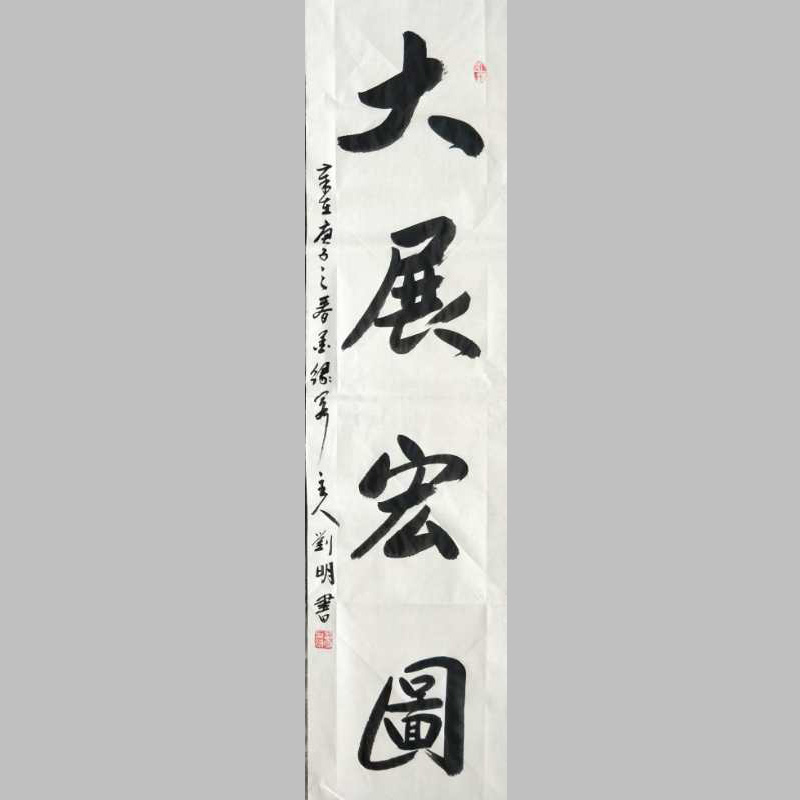 大展宏圖
歲在庚子之春墨缘齋主人劉明書